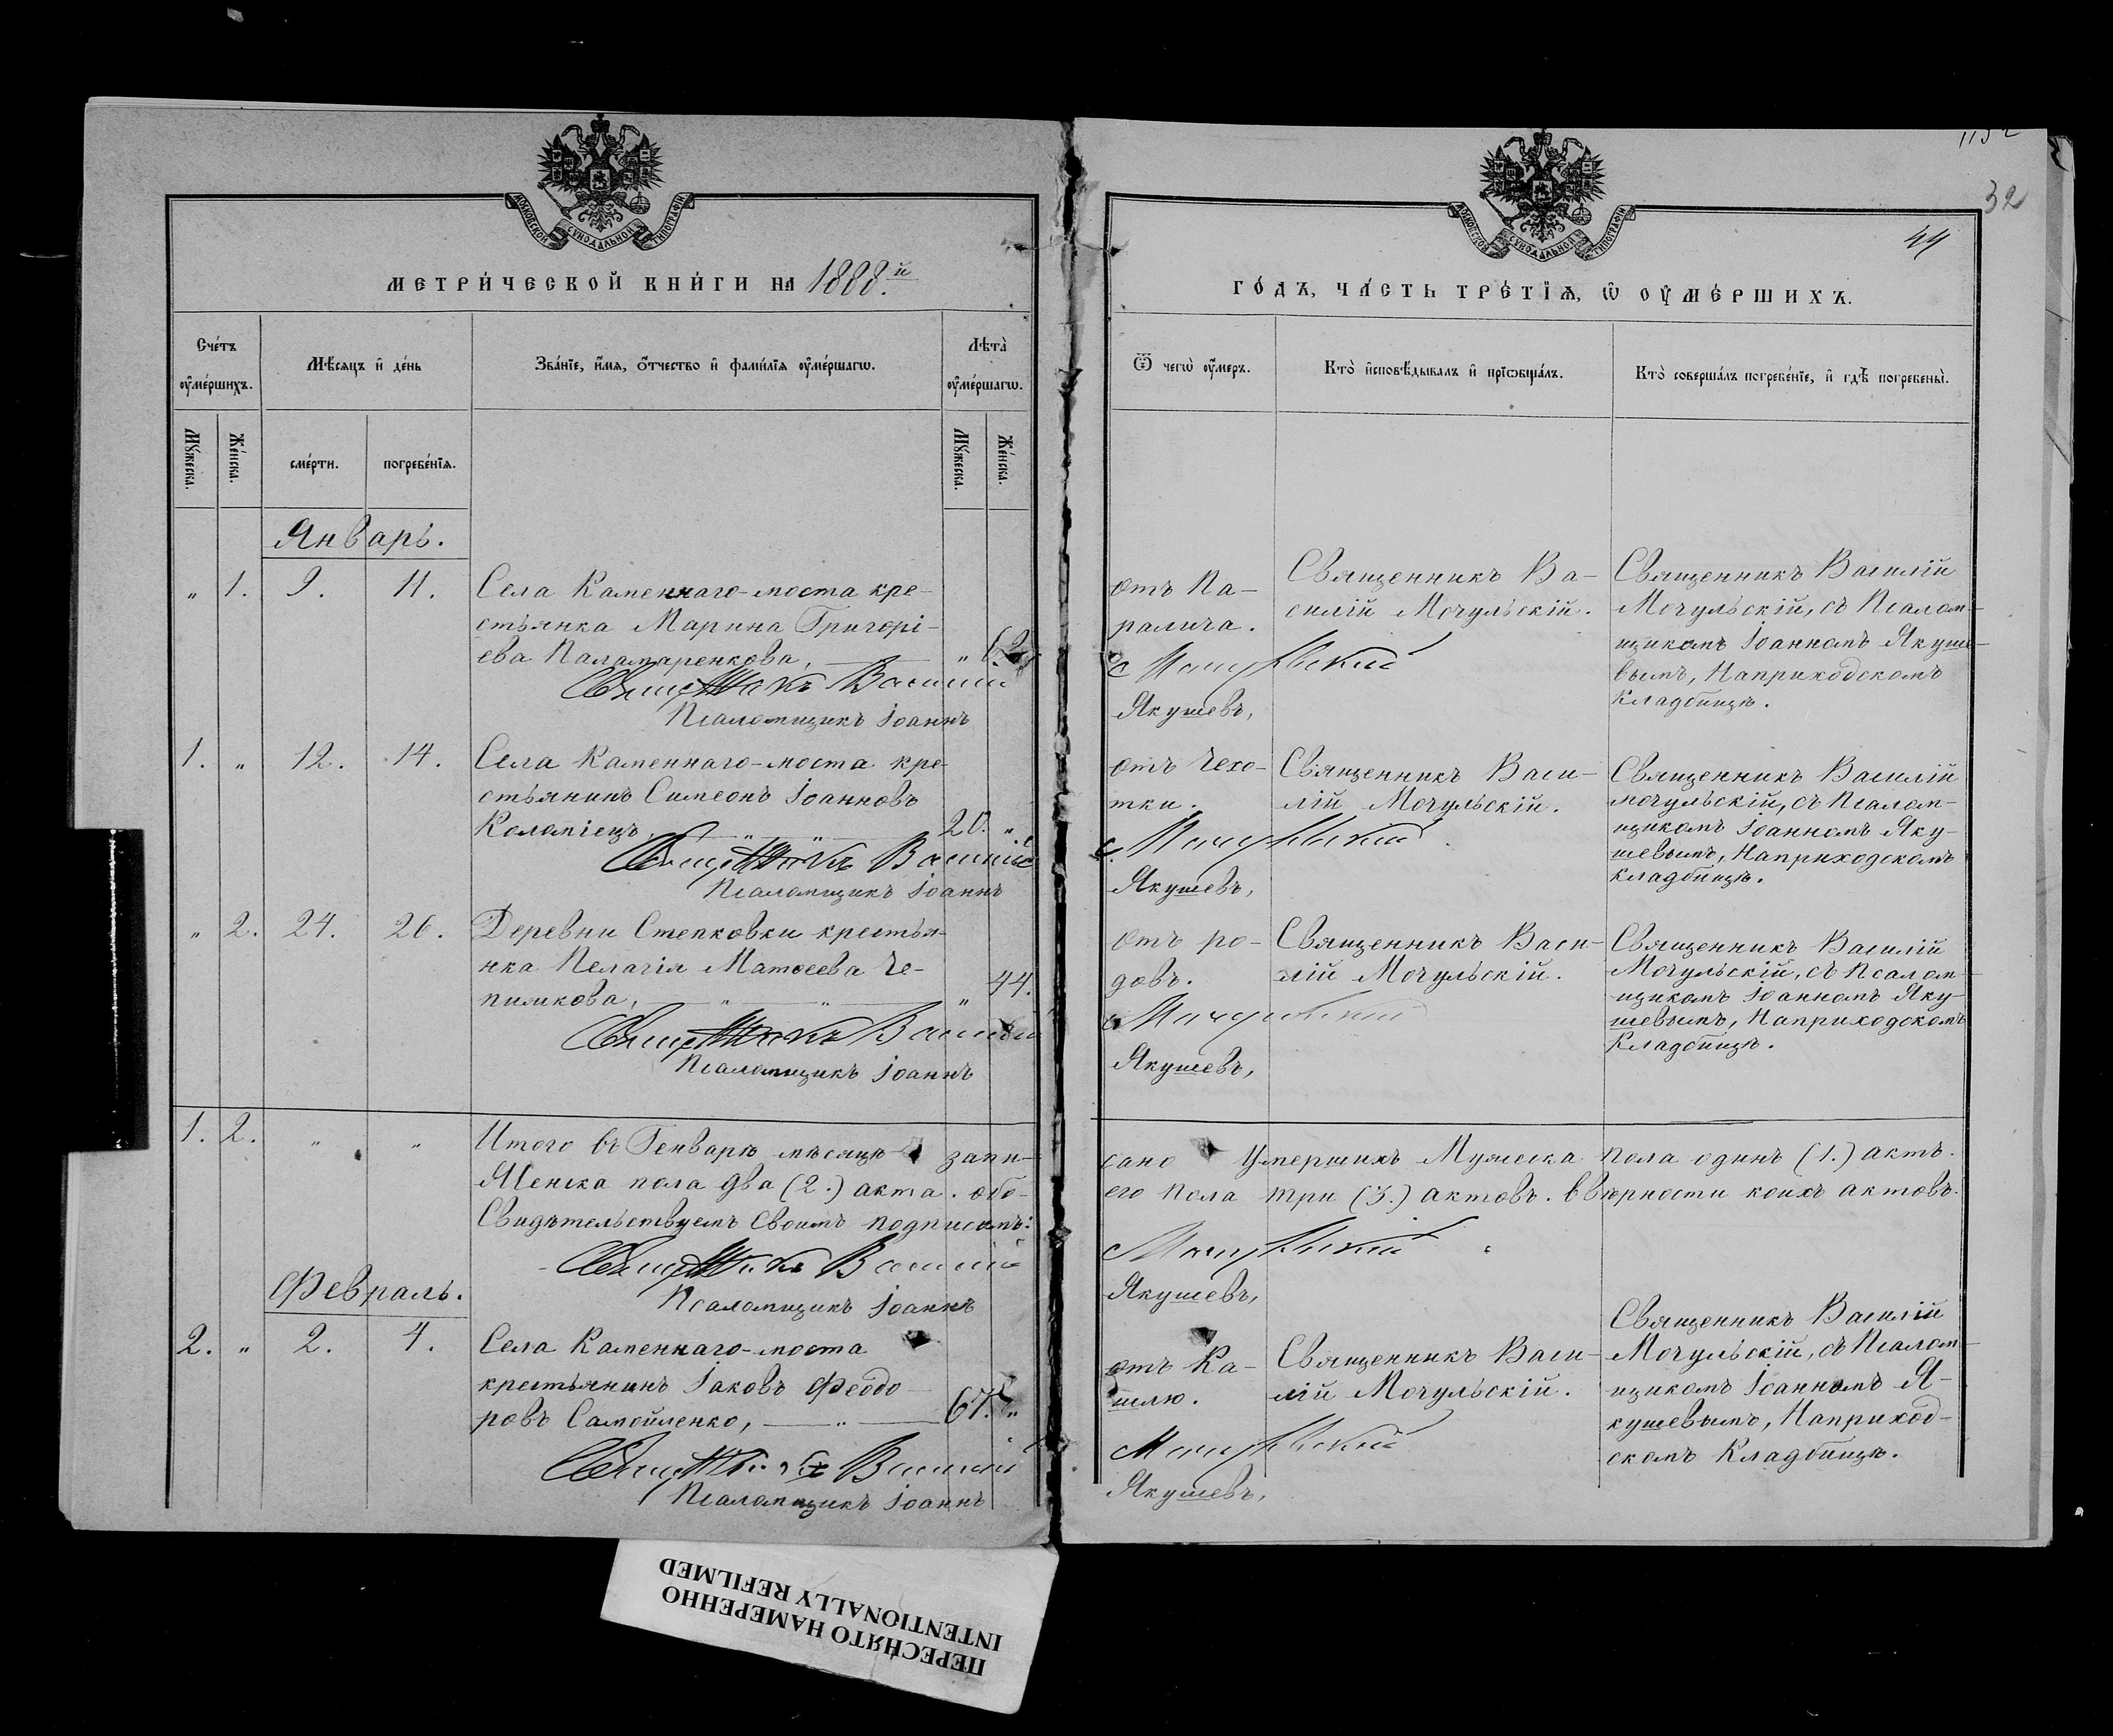 МОСКОВСКОЙ СУНОДАЛЬНОЙ ТИПОГРАФІИ
МЕТРИ́ЧЕСКОЙ КНИ́ГИ НА 1888.й
Сче́тъ ᲂу҆ме́ршихъ.
Мѣ́сяцъ и҆ де́нь
Зва́нїе, и҆́мѧ, ѻ҆́тчество и҆ фами́лїѧ ᲂу҆ме́ршагѡ.
Лѣ́та ᲂу҆ме́ршагѡ.
Мꙋ́жеска.
Же́нска.
сме́рти.
погребе́нїѧ.
Мꙋ́жеска.
Же́нска.
Январь.
„ 1. 9. 11. Села Каменнаго-моста кре-
стьянка Марина Григорі-
ева Паламаренкова, „
Священникъ Василій
Псаломщикъ Іоаннъ
1. „ 12. 14. Села Каменнаго-моста кре-
стьянинъ Симеонъ Іоанновъ
Коломіецъ, „ „ 20. „
Священникъ Василій
Псаломщикъ Іоаннъ
„ 2. 24. 26. Деревни Степковки крестья-
нка Пелагія Матѳеева Че-
пижкова, „ „ „ 44.
Священникъ Василій
Псаломщикъ Іоаннъ
1. 2. „ „ Итого въ Генварѣ мѣсяцѣ запи-
Женска пола два (2.) акта. обо-
Свидѣтельствуемъ своимъ подписомъ:
Священникъ Василій
Псаломщикъ Іоаннъ
Февраль.
2. „ 2. 4. Села Каменнаго-моста
крестьянинъ Іаковъ Ѳеодо-
ровъ Самойленко, „ 67. „
Священникъ Василій
Псаломщикъ Іоаннъ
32
44
МОСКОВСКОЙ СУНОДАЛЬНОЙ ТИПОГРАФІИ
ГО́ДЪ, ЧА́СТЬ ТРЕ́ТЇѦ, Ѡ҆ ОУ҆МЕ́РШИХЪ.
Ѿ чегѡ̀ ᲂу҆́меръ.
Кто̀ и҆сповѣ́дывалъ и҆ прїѡбща́лъ.
Кто̀ соверша́лъ погребе́нїе, и҆ гдѣ̀ погребены̀.
отъ Па-
ралича.
Священникъ Ва-
силій Мочульскій.
Священникъ Василій
Мочульскій, съ Псалом-
щикомъ Іоанномъ Якуше-
вымъ, Наприходскомъ
Кладбищѣ.
Мочульский
Якушевъ,
отъ Чехо-
тки.
Священникъ Васи-
лій Мочульскій.
Священникъ Василій
Мочульскій, съ Псалом-
щикомъ Іоанномъ Яку-
шевымъ, Наприходскомъ
Кладбищѣ.
Мочульский
Якушевъ,
отъ ро-
довъ.
Священникъ Васи-
лій Мочульскій.
Священникъ Василій
Мочульскій, съ Псалом-
щикомъ Іоанномъ Яку-
шевымъ, Наприходскомъ
Кладбищѣ.
Мочульский
Якушевъ,
сано Умершихъ Мужеска пола одинъ (1.) актъ.
его пола три (3.) актовъ. ввѣрности коихъ актовъ.
Мочульский
Якушевъ,
отъ Ка-
шлю.
Священникъ Васи-
лій Мочульскій.
Священникъ Василій
Мочульскій, съ Псалом-
щикомъ Іоанномъ Я-
кушевымъ, Наприход-
скомъ Кладбищѣ.
Мочульский
Якушевъ,
ПЕРЕСНЯТО НАМЕРЕННО
INTENTIONALLY REFILMED